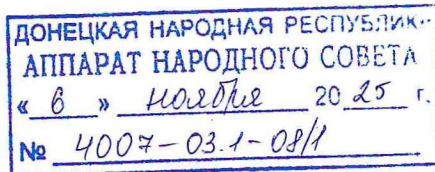 ДОНЕЦКАЯ НАРОДНАЯ РЕСПУБЛИКА
АППАРАТ НАРОДНОГО СОВЕТА
« 6 » ноября 20 25 г.
№ 4007-03.1-08/1